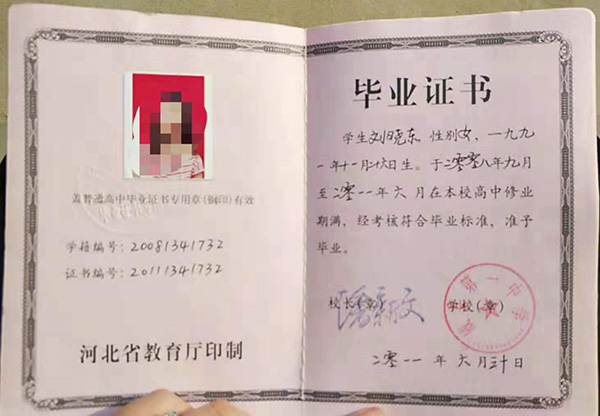 盖普通高中毕业证书专用章(钢印)有效
学籍编号：20081341732
证书编号：20111341732
河北省教育厅印制
毕业证书
学生刘晓东，性别女，一九九
一年十一月廿六日生。于二〇〇八年九月
至二〇一一年六月在本校高中修业
期满，经考核符合毕业标准，准予
毕业。
校长(章)
学校(章)
第一中学
二〇一一年六月三十日